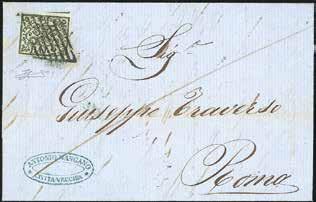 Sig.r
Giuseppe Traverso
Roma
ANTONIO MANGANO
CIVITAVECCHIA